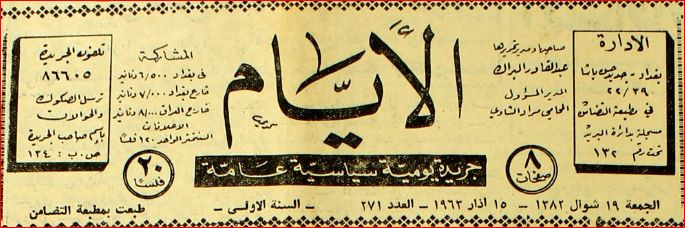 الادارة
بغداد - جديد حسن باشا
٢٢/٣٩
في مطبعة التضامن
مسجلة بدائرة البريد
تحت رقم ١٣٢
صاحبها ومدير تحريرها
عبد القادر البراك
المدير المسؤول
المحامي مراد الشاوي
٨
صفحات
الأيام
جريدة يومية سياسية عامة
المشاركة
في بغداد ٦/٥٠٠ دنانير
خارج بغداد ٧/٠٠٠ دنانير
خارج العراق ٨/٠٠٠ دنانير
الاعلانات
السنتمتر الواحد ١٢٠ فلسا
٢٠
فلسا
تلفون الجريدة
٨٦٦٠٥
ترسل الصكوك
والحوالات
بإسم صاحب الجريدة
ص.ب : ١٣٤
الجمعة ١٩ شوال ١٣٨٢ - ١٥ اذار ١٩٦٣ - العدد ٢٧١ - السنة الاولى - طبعت بمطبعة التضامن